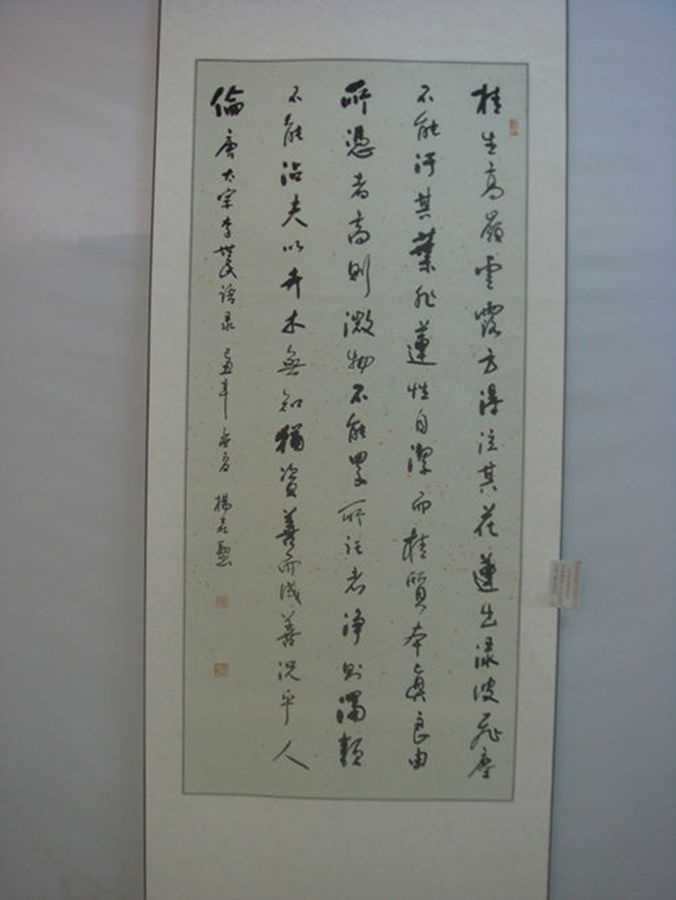 桂生高嶺雲露方得泫其花蓮出淥波飛塵
不能汙其葉非蓮性自潔而桂質本真良由
所憑者高則微物不能累所託者淨則濁類
不能沾夫以卉木無知猶資善而成善況乎人
倫 唐太宗李世民語录 己丑年 楊